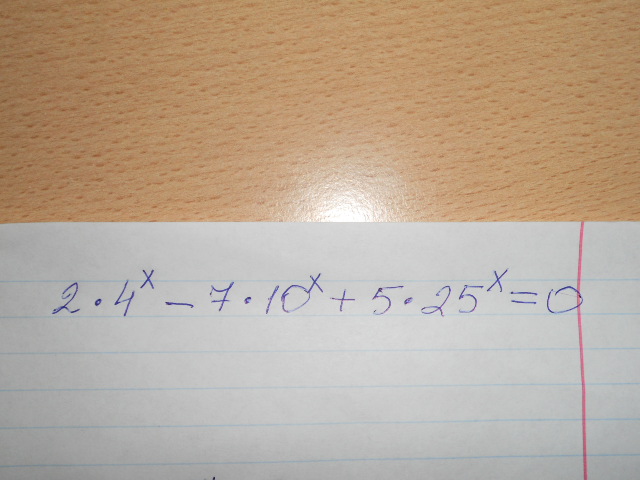 2 · 4^x − 7 · 10^x + 5 · 25^x = 0